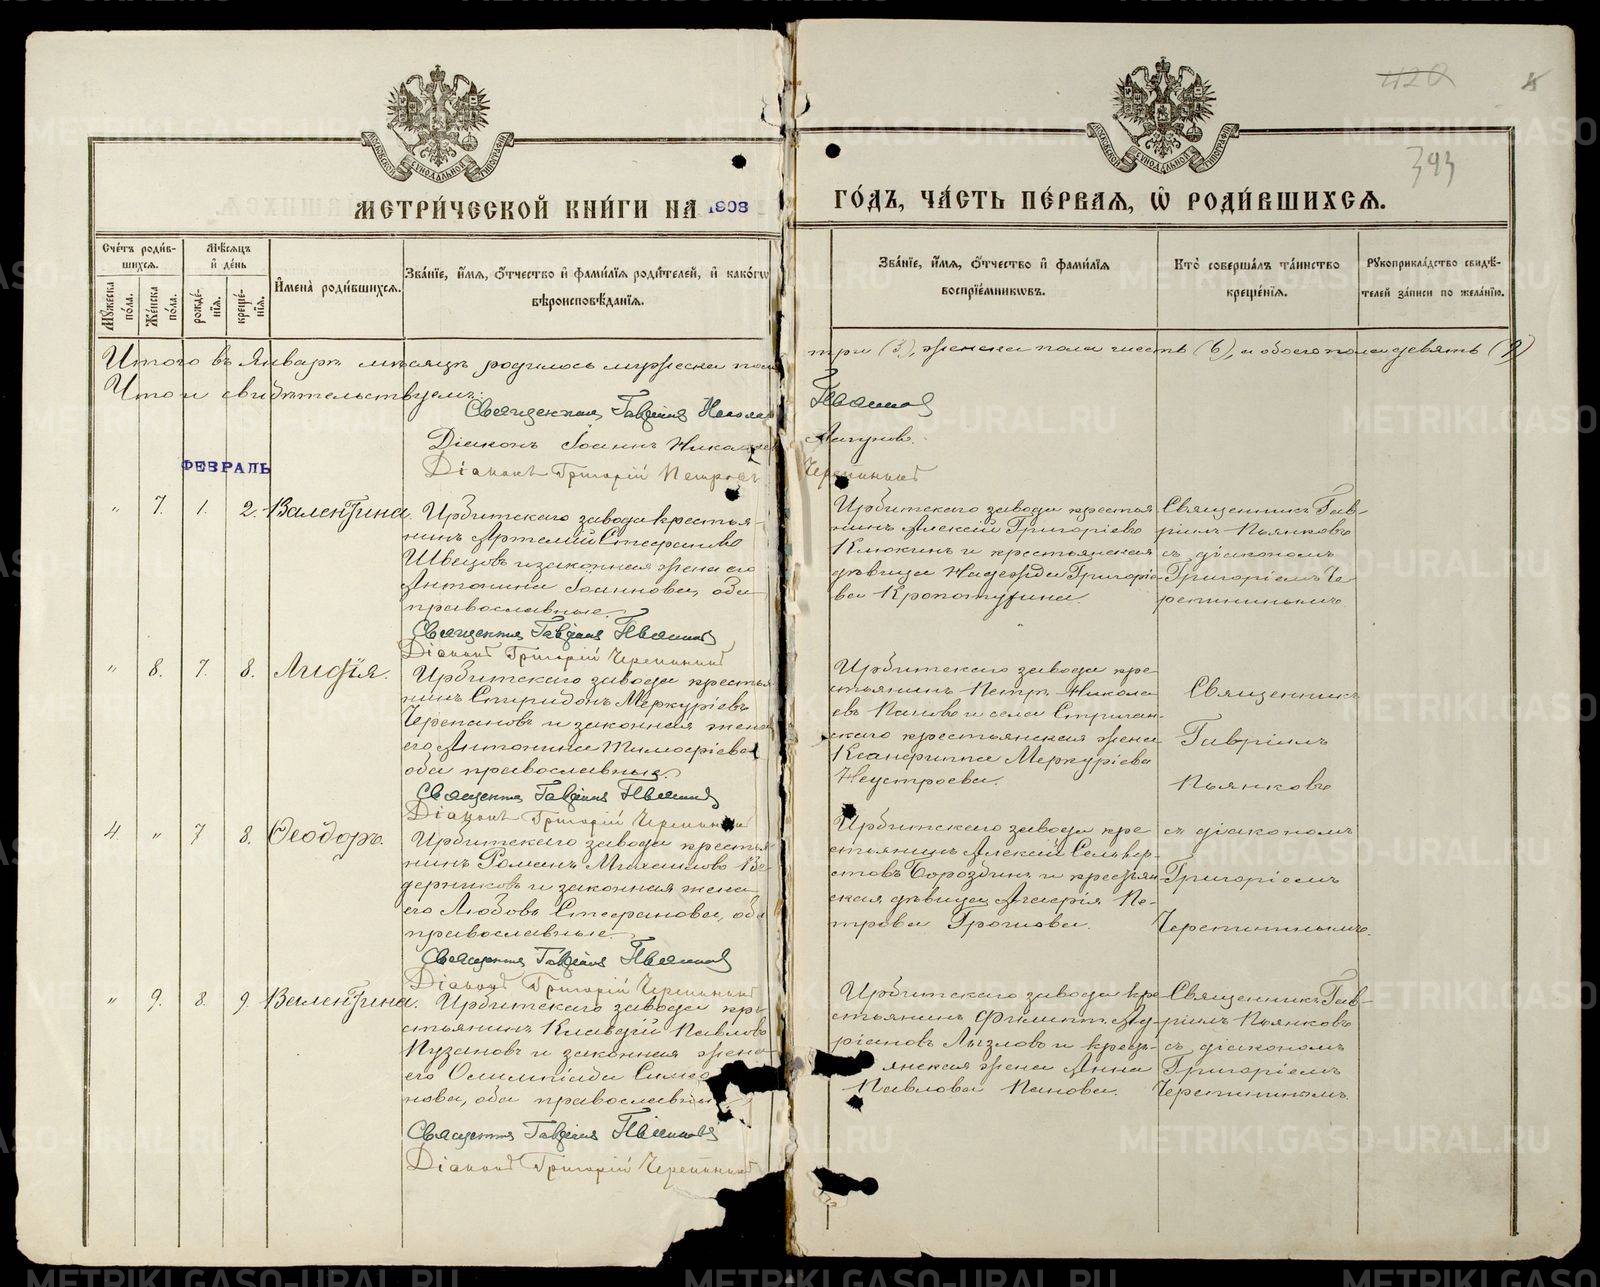 МЕТРИЧЕСКОЙ КНИГИ НА 1908 ГОДЪ, ЧАСТЬ ПЕРВАЯ, Ѽ РОДИВШИХСЯ.
420
393
Счетъ родив-
шихся.
Мужеска пола.
Женска пола.
Мѣсяцъ и день
рожде-
нія.
креще-
нія.
Имена родившихся.
Званіе, имя, отчество и фамилія родителей, и какого
вѣроисповѣданія.
Званіе, имя, отчество и фамилія
воспріемниковъ.
Кто совершалъ таинство
крещенія.
Рукоприкладство свидѣ-
телей записи по желанію.
Итого въ Январѣ мѣсяцѣ родилось мужеска пола три (3), женска пола шесть (6), а обоего пола девять (9)
Что и свидѣтельствуемъ:
Священникъ Гавріилъ Пьянковъ
Діаконъ Іоаннъ Лагуновъ.
Діаконъ Григорій Черепнинъ
ФЕВРАЛЬ
" 7. 1. 2. Валентина.
Ирбитскаго завода крестья-
нинъ Артемій Стефановъ
Швецовъ и законная жена его
Антонина Іоаннова, оба
православные.
Священникъ Гавріилъ Пьянковъ
Діаконъ Григорій Черепнинъ
Ирбитскаго завода крестья
нинъ Алексій Григоріевъ
Клюкинъ и крестьянская
дѣвица Надежда Григоріе-
ва Кропотухина.
Священникъ Гав-
ріилъ Пьянковъ
съ діакономъ
Григоріемъ Че
репнинымъ
" 8. 7. 8. Лидія.
Ирбитскаго завода крестья
нинъ Спиридонъ Меркуріевъ
Черепановъ и законная жена
его Антонина Тимофіева
оба православные.
Священникъ Гавріилъ Пьянковъ
Діаконъ Григорій Черепнинъ
Ирбитскаго завода кре
стьянинъ Петръ Никола
евъ Пановъ и села Стриган-
скаго крестьянская жена
Ксанфиппа Меркуріева
Неустроева.
Священникъ
Гавріилъ
Пьянковъ
4 " 7 8. Ѳеодоръ.
Ирбитскаго завода крестья
нинъ Романъ Михаиловъ Ве-
дерниковъ и законная жена
его Любовь Стефанова, оба
православные.
Священникъ Гавріилъ Пьянковъ
Діаконъ Григорій Черепнинъ
Ирбитскаго завода кре
стьянинъ Алексій Сельвер-
стовъ Бороздинъ и крестьян
ская дѣвица Валерія Пе-
трова Грошова.
съ діакономъ
Григоріемъ
Черепнинымъ.
" 9. 8. 9. Валентина.
Ирбитскаго завода кре-
стьянинъ Клавдій Павловъ
Пузановъ и законная жена
его Олимпіада Симео
нова, оба православные
Священникъ Гавріилъ Пьянковъ
Діаконъ Григорій Черепнинъ
Ирбитскаго завода кре
стьянинъ Филиппъ Ад-
ріановъ Лызловъ и кресть-
янская жена Анна
Павлова Панова.
Священникъ Гав-
ріилъ Пьянковъ
съ діакономъ
Григоріемъ
Черепнинымъ.
METRIKI.GASO-URAL.RU